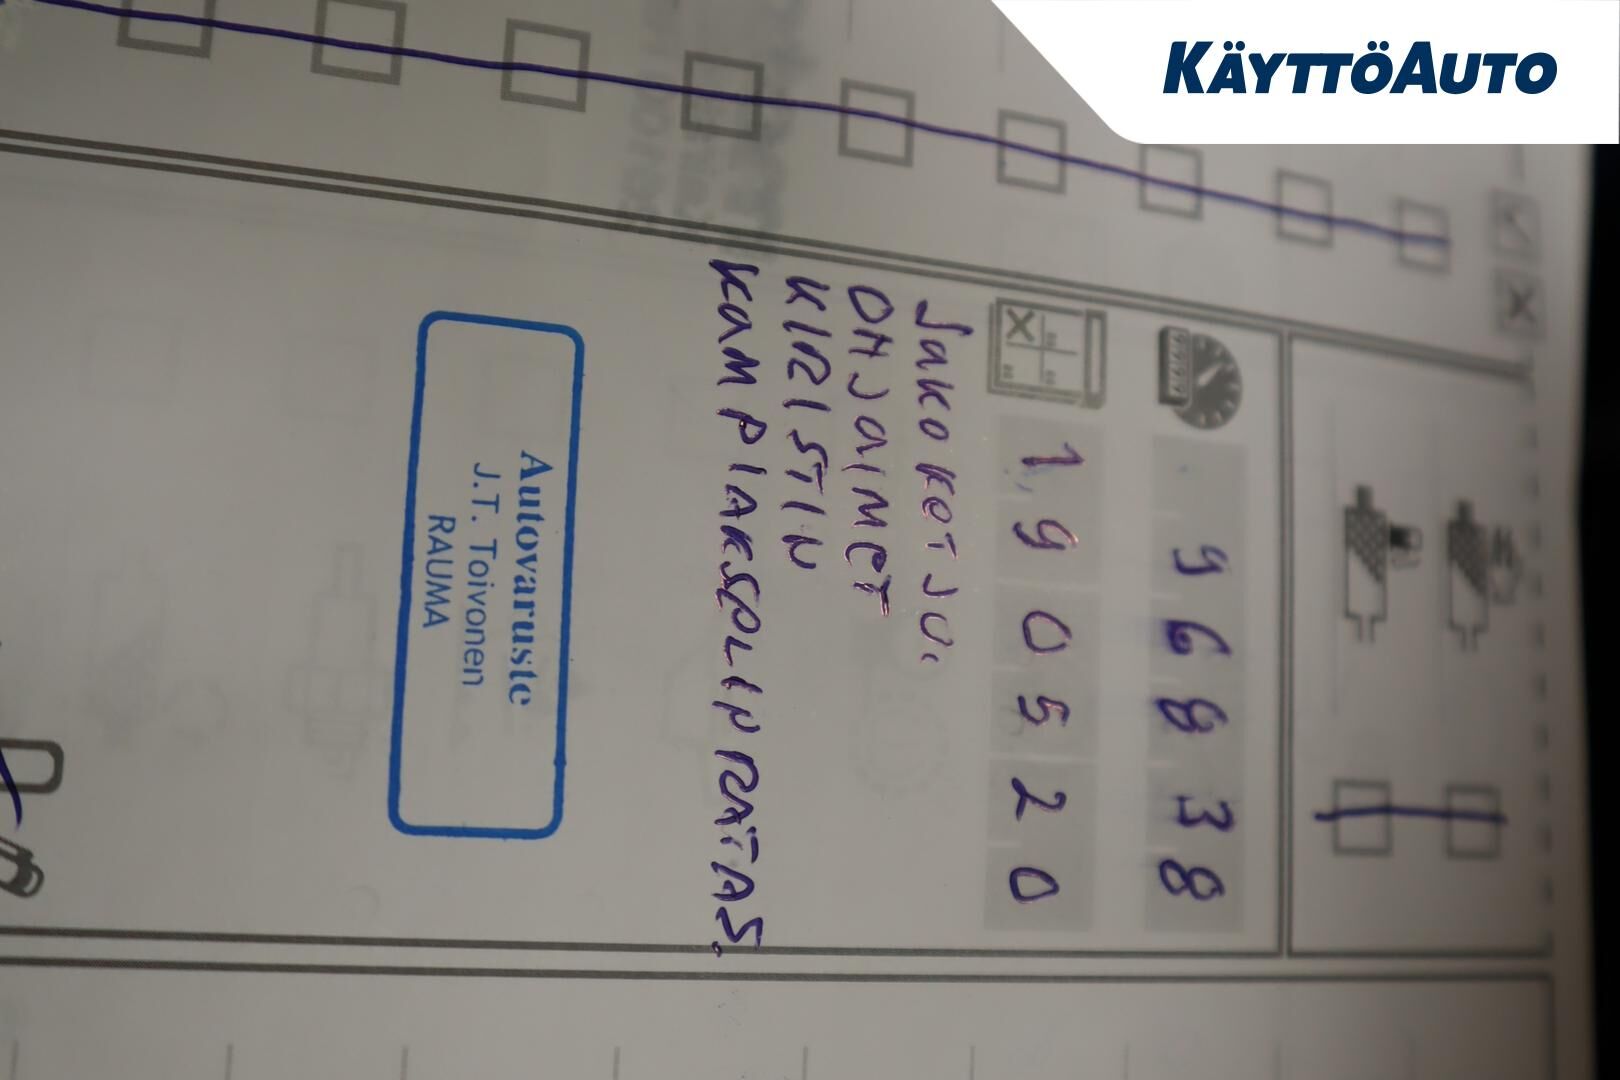 KÄYTTÖAUTO
96838
190520
JAKOKETJU,
OHJAIMET
KIRISTIN
KAMPIAKSELIN RATAS.
Autovaruste
J.T. Toivonen
RAUMA